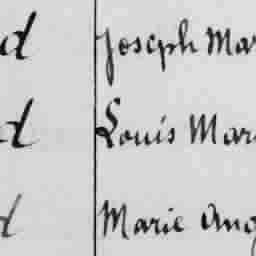 d Joseph Mar
d Louis Mar
d Marie Ang